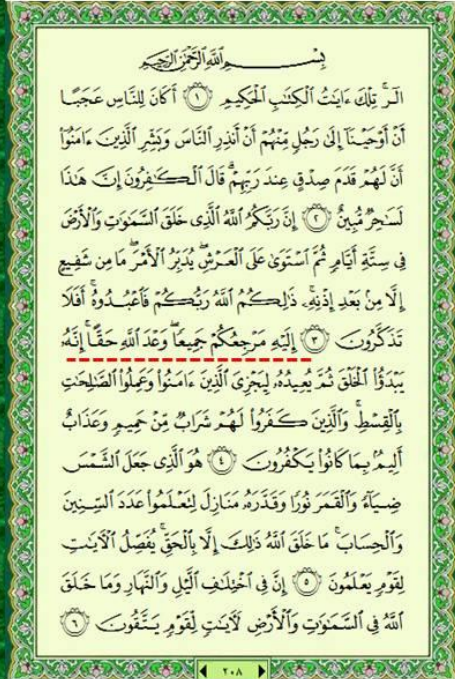 بِسْمِ ٱللَّهِ ٱلرَّحْمَٰنِ ٱلرَّحِيمِ
الٓر ۚ تِلْكَ ءَايَٰتُ ٱلْكِتَٰبِ ٱلْحَكِيمِ ١ أَكَانَ لِلنَّاسِ عَجَبًا
أَنْ أَوْحَيْنَآ إِلَىٰ رَجُلٍ مِّنْهُمْ أَنْ أَنذِرِ ٱلنَّاسَ وَبَشِّرِ ٱلَّذِينَ ءَامَنُوٓا۟
أَنَّ لَهُمْ قَدَمَ صِدْقٍ عِندَ رَبِّهِمْ ۗ قَالَ ٱلْكَٰفِرُونَ إِنَّ هَٰذَا
لَسَٰحِرٌ مُّبِينٌ ٢ إِنَّ رَبَّكُمُ ٱللَّهُ ٱلَّذِى خَلَقَ ٱلسَّمَٰوَٰتِ وَٱلْأَرْضَ
فِى سِتَّةِ أَيَّامٍ ثُمَّ ٱسْتَوَىٰ عَلَى ٱلْعَرْشِ ۖ يُدَبِّرُ ٱلْأَمْرَ ۖ مَا مِن شَفِيعٍ
إِلَّا مِنۢ بَعْدِ إِذْنِهِۦ ۚ ذَٰلِكُمُ ٱللَّهُ رَبُّكُمْ فَٱعْبُدُوهُ ۚ أَفَلَا
تَذَكَّرُونَ ٣ إِلَيْهِ مَرْجِعُكُمْ جَمِيعًا ۖ وَعْدَ ٱللَّهِ حَقًّا ۚ إِنَّهُۥ
يَبْدَؤُا۟ ٱلْخَلْقَ ثُمَّ يُعِيدُهُۥ لِيَجْزِىَ ٱلَّذِينَ ءَامَنُوا۟ وَعَمِلُوا۟ ٱلصَّٰلِحَٰتِ
بِٱلْقِسْطِ ۚ وَٱلَّذِينَ كَفَرُوا۟ لَهُمْ شَرَابٌ مِّنْ حَمِيمٍ وَعَذَابٌ
أَلِيمٌۢ بِمَا كَانُوا۟ يَكْفُرُونَ ٤ هُوَ ٱلَّذِى جَعَلَ ٱلشَّمْسَ
ضِيَآءً وَٱلْقَمَرَ نُورًا وَقَدَّرَهُۥ مَنَازِلَ لِتَعْلَمُوا۟ عَدَدَ ٱلسِّنِينَ
وَٱلْحِسَابَ ۚ مَا خَلَقَ ٱللَّهُ ذَٰلِكَ إِلَّا بِٱلْحَقِّ ۚ يُفَصِّلُ ٱلْءَايَٰتِ
لِقَوْمٍ يَعْلَمُونَ ٥ إِنَّ فِى ٱخْتِلَٰفِ ٱلَّيْلِ وَٱلنَّهَارِ وَمَا خَلَقَ
ٱللَّهُ فِى ٱلسَّمَٰوَٰتِ وَٱلْأَرْضِ لَءَايَٰتٍ لِّقَوْمٍ يَتَّقُونَ ٦
٢٠٨